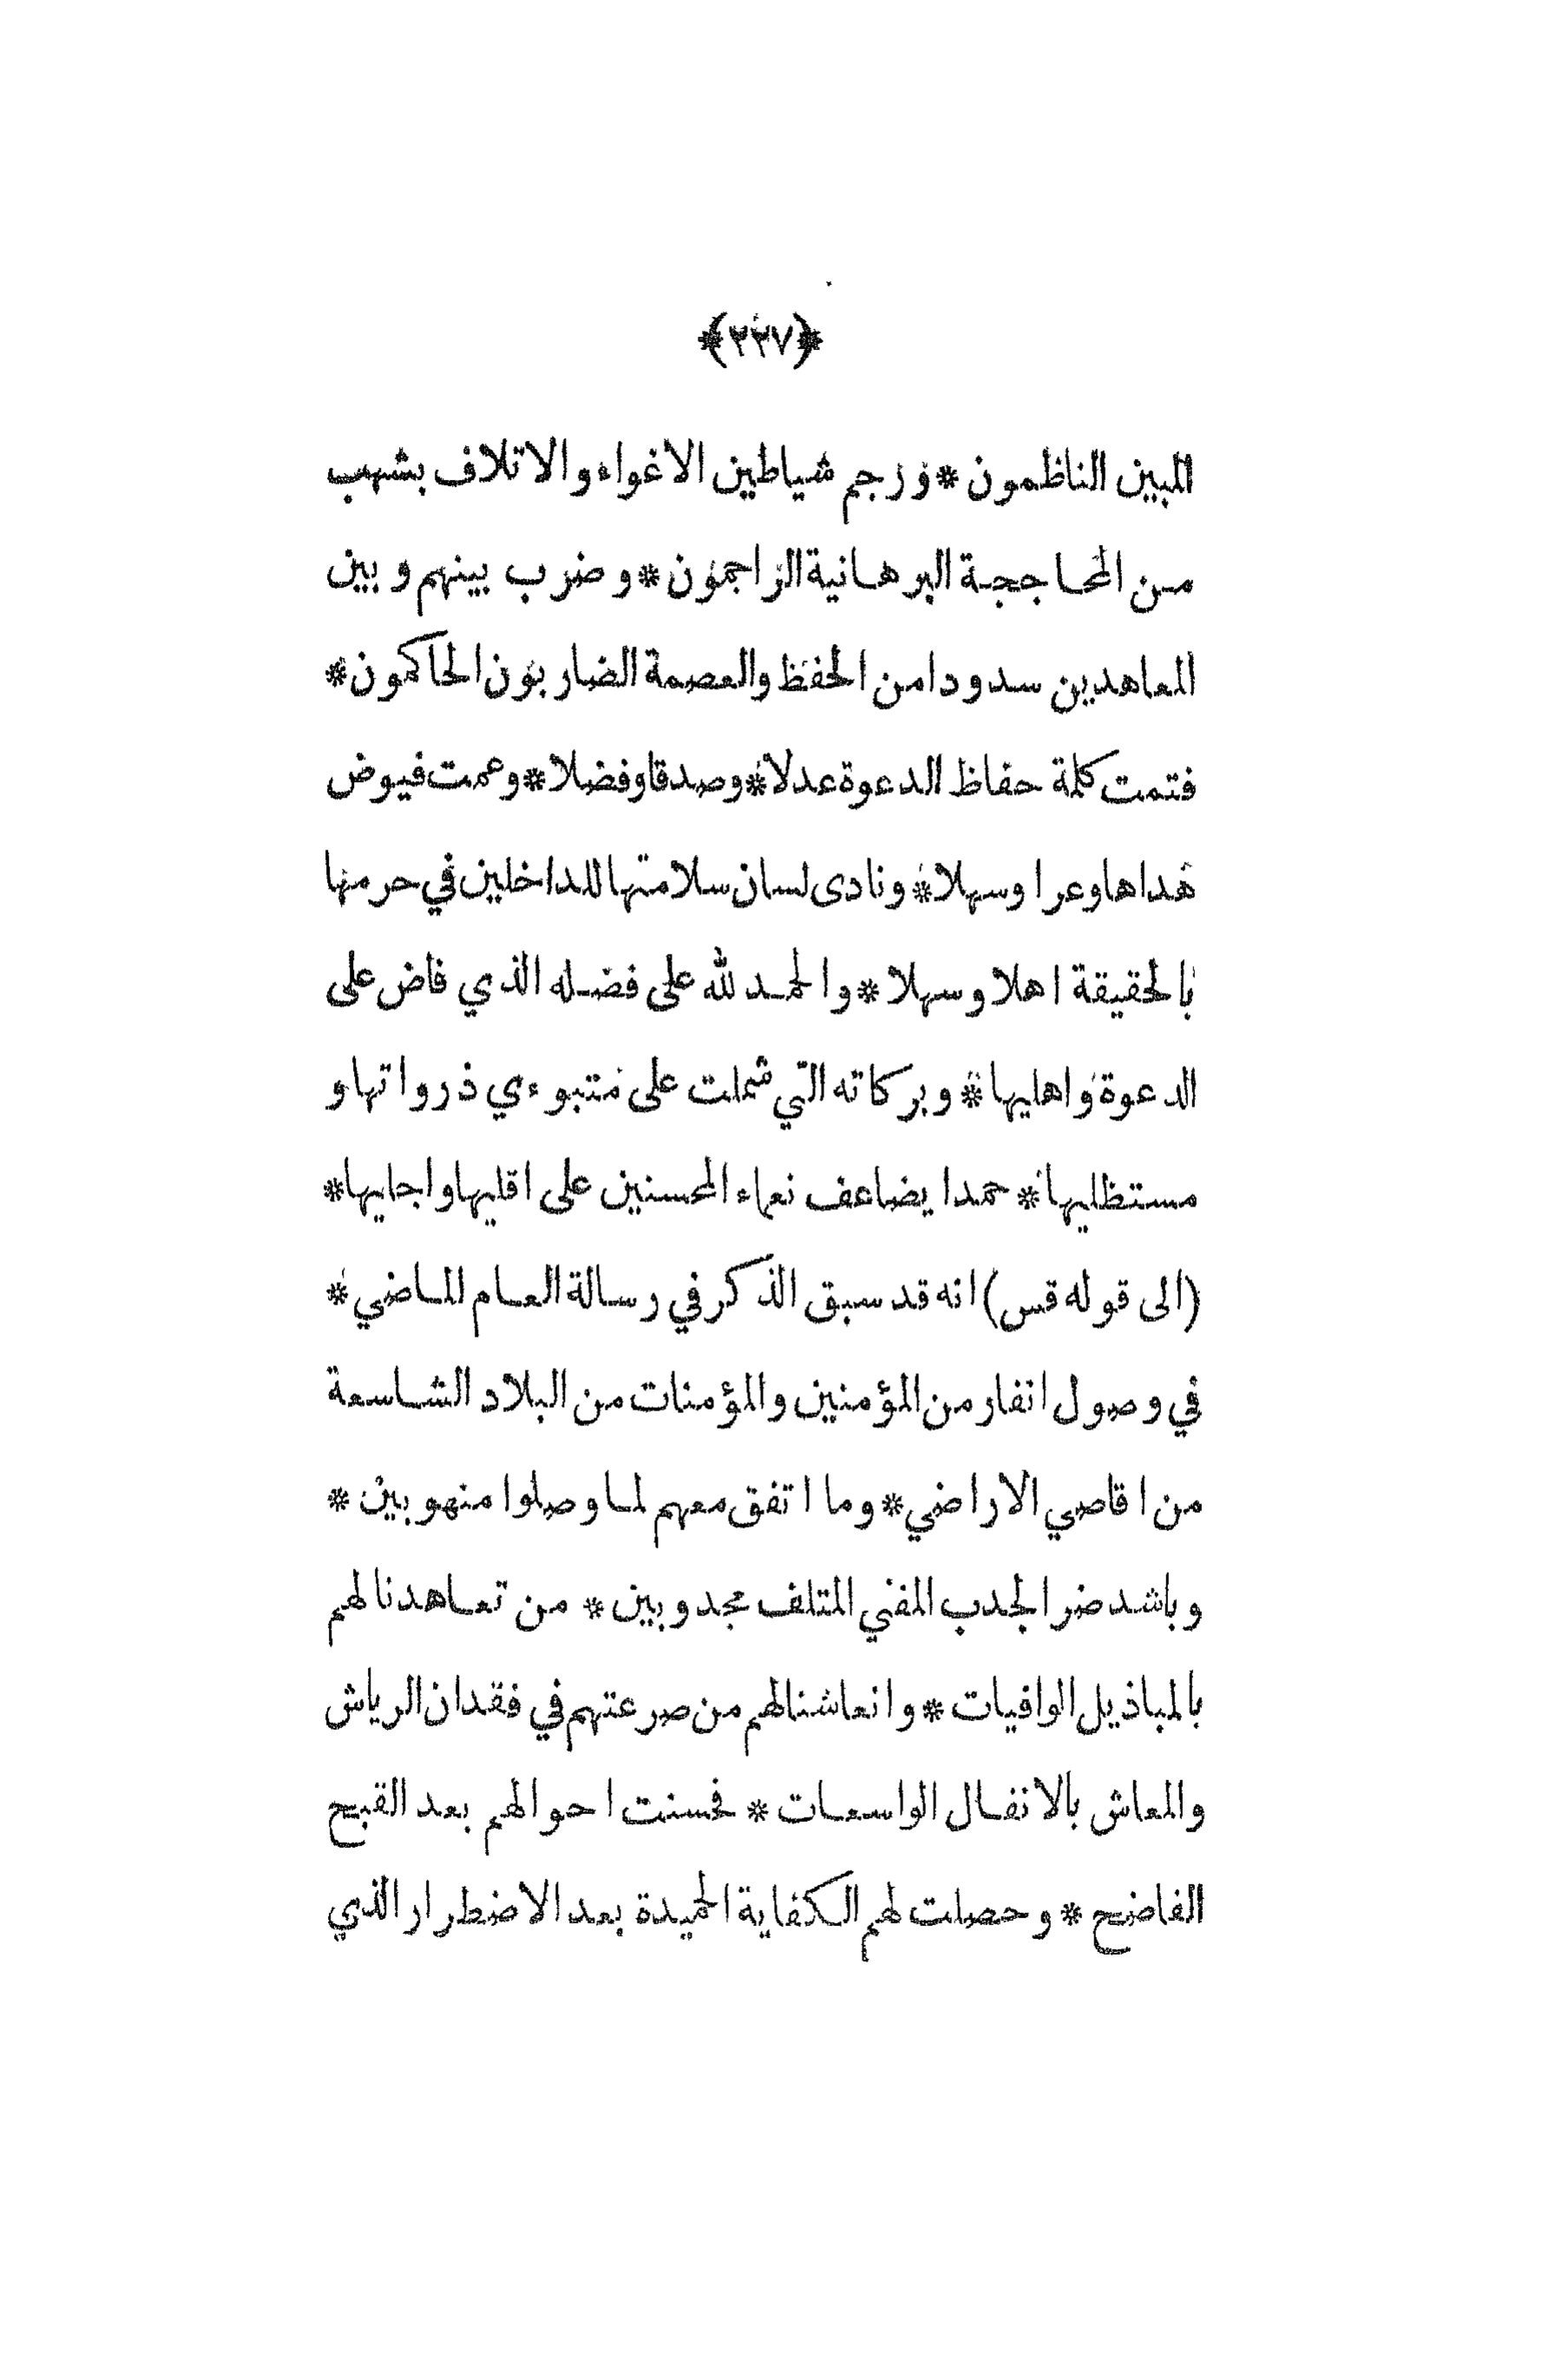 ﴿٢٢٧﴾
المبين الناظمون * ورجم شياطين الاغواء والاتلاف بشهب
من المحاججة البرهانية الراجمون * وضرب بينهم وبين
المعاهدين سدودا من الحفظ والعصمة الضاربون الحاكمون *
فتمت كلمة حفاظ الدعوة عدلا * وصدقا وفضلا * وعمت فيوض
هداها وعرا وسهلا * ونادى لسان سلامتها للداخلين في حرمنها
بالحقيقة اهلا وسهلا * والحمد لله على فضله الذي فاض على
الدعوة واهليها * وبركاته التي شملت على متبوءي ذرواتها و
مستظليها * حمدا يضاعف نعماء المحسنين على اقليها واجليها *
(الى قوله قس) انه قد سبق الذكر في رسالة العام الماضي *
في وصول انفار من المؤمنين والمؤمنات من البلاد الشاسعة
من اقاصي الاراضي * وما اتفق معهم لما وصلوا منهوبين *
وباشد ضر الجدب المفني المتلف مجدوبين * من تعاهدنا لهم
بالمباذيل الوافيات * وانعاشنا لهم من صرعتهم في فقدان الرياش
والمعاش بالانفال الواسعات * فحسنت احوالهم بعد القبح
الفاضح * وحصلت لهم الكفاية الحميدة بعد الاضطرار الذي